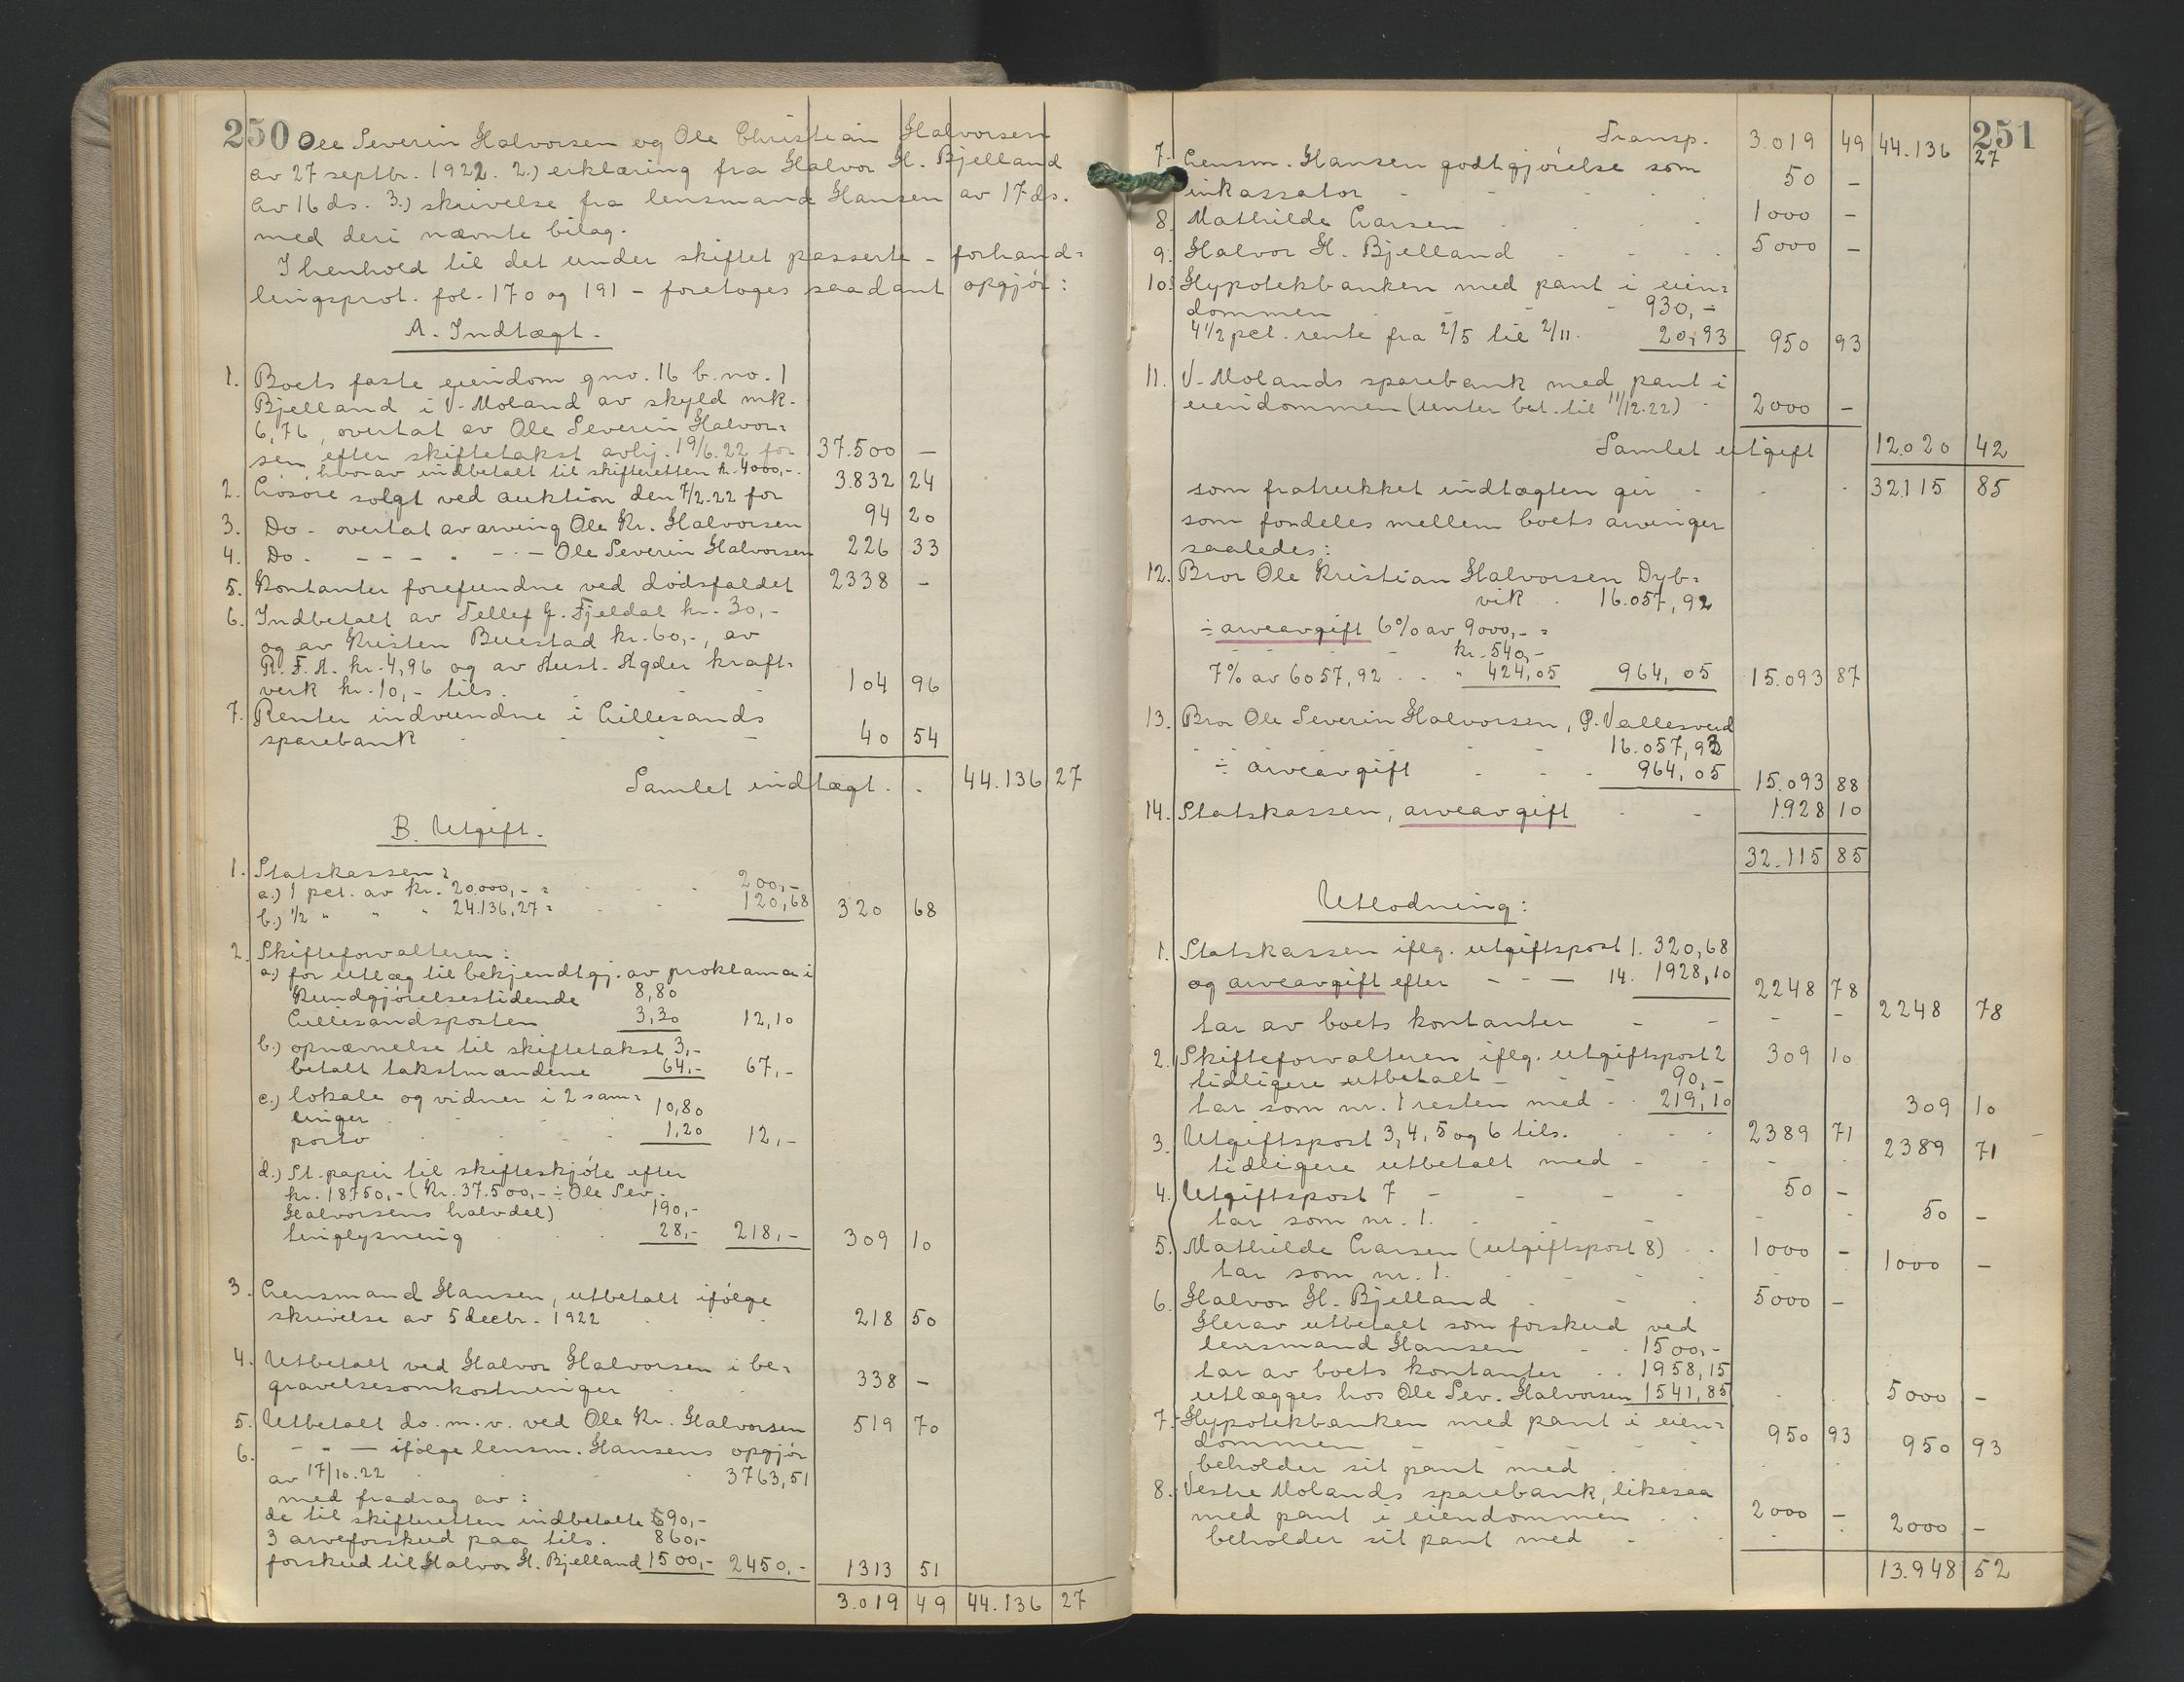 250 Ole Severin Halvorsen og Ole Christian Halvorsen
av 27 septbr. 1922. 2.) erklæring fra Halvor H. Bjelland
av 16 ds. 3.) skrivelse fra lensmand Hansen av 17 ds.
med deri nævnte bilag.
I henhold til det under skiftet passerte – forhand=
lingsprot. fol. 170 og 191 – foretoges saadant opgjør:
A. Indtægt.
1. Boets faste eiendom gno. 16 b.no. 1
Bjelland i V. Moland av skyld mk.
6,76, overtat av Ole Severin Halvor=
sen efter skiftetakst avhj. 19/6.22 for 37.500 –
hvorav indbetalt til skifteretten kr. 4000,-.
2. Løsøre solgt ved auktion den 7/2.22 for 3.832 24
3. Do – overtat av arving Ole Kr. Halvorsen 94 20
4. Do. – – – – – – Ole Severin Halvorsen 226 33
5. Kontanter forefundne ved dødsfaldet 2338 –
6. Indbetalt av Tellef G. Fjeldal kr. 30,-
og av Kristen Buestad kr. 60,-, av
R. F. A. kr. 4,96 og av Aust-Agder kraft=
verk kr. 10,- tils. 104 96
7. Renter indvundne i Lillesands
sparebank 40 54
Samlet indtægt . . 44.136 27
B. Utgift.
1. Statskassen:
a.) 1 pct. av kr. 20.000,- = 200,-
b.) 1/2 " " " 24.136,27 = 120,68 320 68
2. Skifteforvalteren:
a.) for utlæg til bekjendtgj. av proklama i
Kundgjørelsestidende 8,80
Lillesandsposten 3,30 12,10
b.) opnævnelse til skiftetakst 3,-
betalt takstmændene 64,- 67,-
c.) lokale og vidner i 2 sam=
linger 10,80
porto 1,20 12,-
d.) St. papir til skifteskjøte efter
kr. 18750,- (Kr. 37.500,- ÷ Ole Sev.
Halvorsens halvdel) 190,-
tinglysning 28,- 218,- 309 10
3. Lensmand Hansen, utbetalt ifølge
skrivelse av 5 decbr. 1922 218 50
4. Utbetalt ved Halvor Halvorsen i be=
gravelsesomkostninger 338 –
5. Utbetalt do. m. v. ved Ole Kr. Halvorsen 519 70
6. – " – ifølge lensm. Hansens opgjør
av 17/10.22 3763,51
med fradrag av:
de til skifteretten indbetalte 90,-
3 arveforskud paa tils. 860,-
forskud til Halvor H. Bjelland 1500,- 2450,- 1313 51
3.019 49 44.136 27
251
Transp. 3.019 49 44.136 27
7. Lensm. Hansen godtgjørelse som
inkassator 50 –
8. Mathilde Larsen 1000 –
9. Halvor H. Bjelland 5000 –
10. Hypotekbanken med pant i eien=
dommen 930,-
4 1/2 pct. rente fra 2/5 til 2/11. 20,93 950 93
11. V. Molands sparebank med pant i
eiendommen (renter bet. til 11/12.22) 2000 –
Samlet utgift 12.020 42
som fratrukket indtægten gir 32.115 85
som fordeles mellem boets arvinger
saaledes:
12. Bror Ole Kristian Halvorsen Dyb=
vik 16.057,92
÷ arveavgift 6% av 9000,- =
kr. 540,-
7% av 6057,92 . . " 424,05 964,05 15.093 87
13. Bror Ole Severin Halvorsen, P. Vallesverd
16.057,93
÷ arveavgift 964,05 15.093 88
14. Statskassen, arveavgift 1928 10
32.115 85
Utlodning:
1. Statskassen iflg. utgiftspost 1. 320,68
og arveavgift efter – – – 14. 1928,10 2248 78
tar av boets kontanter – – – – 2248 78
2. Skifteforvalteren iflg. utgiftspost 2 309 10
tidligere utbetalt – 90,-
tar som nr. 1 resten med 219,10 309 10
3. Utgiftspost 3, 4, 5 og 6 tils. 2389 71
tidligere utbetalt med – 2389 71
4. Utgiftspost 7 50 –
tar som nr. 1. 50 –
5. Mathilde Larsen (utgiftspost 8) 1000 –
tar som nr. 1. 1000 –
6. Halvor H. Bjelland 5000 –
Herav utbetalt som forskud ved
lensmand Hansen 1500,-
tar av boets kontanter . . 1958,15
utlægges hos Ole Sev. Halvorsen 1541,85 5000 –
7. Hypotekbanken med pant i eien=
dommen 950 93
beholder sit pant med 950 93
8. Vestre Molands sparebank, likesaa
med pant i eiendommen 2000 –
beholder sit pant med 2000 –
13.948 52